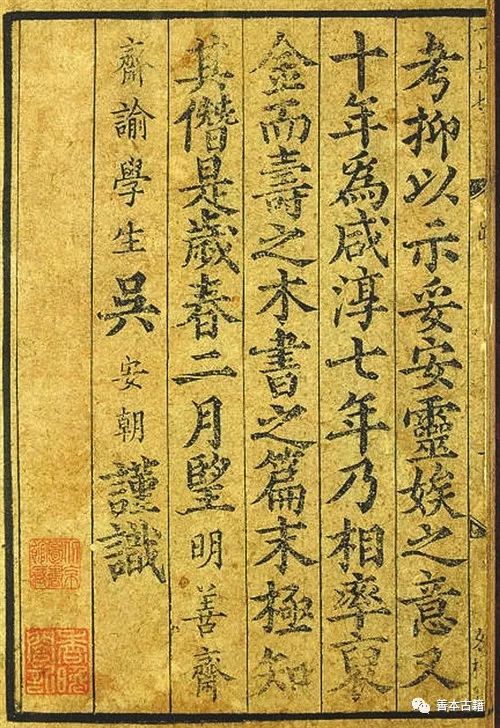 考抑以示妥安靈娭之意又
十年為咸淳七年乃相率裒
金而壽之木書之篇末極知
其僭是歲春二月朢明善齋
齋諭學生吳安朝謹識
善本古籍